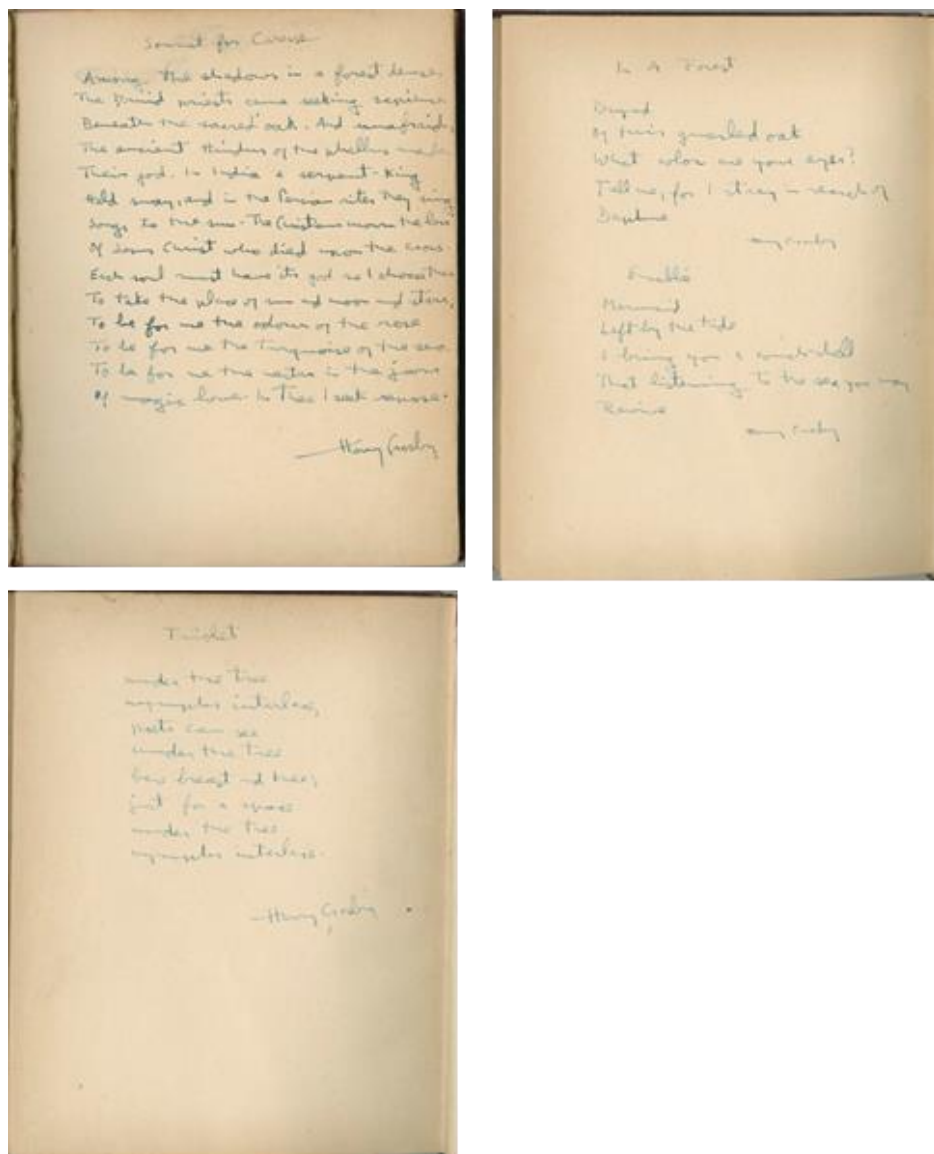 Sonnet for Caresse
Among the shadows in a forest dense
The Druid priests came seeking sapience
Beneath the sacred oak. And unafraid,
The ancient Hindus of the phallus made
Their god. In India a serpent-King
Held sway, and in the Persian rites they sing
Songs to the sun. The Christians mourn the loss
Of Jesus Christ who died upon the cross.
Each soul must have its god so I choose thee
To take the place of sun and moon and stars,
To be for me the odour of the rose
To be for me the Turquoise of the sea
To be for me the in the jars
Of magic love. In Thee I seek repose.
Harry Crosby
In A Forest
Dryad
Of this gnarled oak
What color are your eyes?
Tell me, for I stray in search of
Daphne
Harry Crosby
Mermaid
Left by the tide
I bring you a
That listening to the sea you may
Revive
Harry Crosby
Triolet
under the tree
nymphs interlace,
poets can see
under the tree
bare breast and knee,
just for a space
under the tree
nymphs interlace.
Harry Crosby